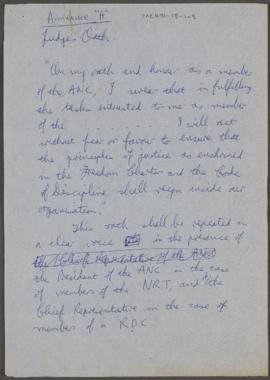 Annexure "A"
Judge's Oath.
"On my oath and honour as a member
of the ANC, I swear that in fulfilling
the tasks entrusted to me as member
of the . . . . . . . . . I will act
without fear or favour to ensure that
the principles of justice as enshrined
in the Freedom Charter and the Code
of Discipline shall reign inside our
organisation."
This oath shall be repeated in
a clear voice in the presence of
the Chief Representative of the ANC
the President of the ANC in the case
of members of the NRT, and the
Chief Representative in the case of
members of a RDC